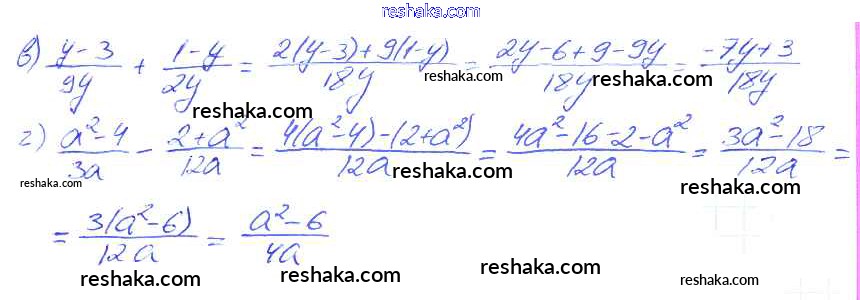 reshaka.com
в) (y-3)/(9y) + (1-y)/(2y) = (2(y-3)+9(1-y))/(18y) = (2y-6+9-9y)/(18y) = (-7y+3)/(18y)
reshaka.com reshaka.com reshaka.com
г) (a²-4)/(3a) - (2+a²)/(12a) = (4(a²-4)-(2+a²))/(12a) = (4a²-16-2-a²)/(12a) = (3a²-18)/(12a) =
reshaka.com reshaka.com reshaka.com reshaka.com
= (3(a²-6))/(12a) = (a²-6)/(4a)
reshaka.com reshaka.com reshaka.com reshaka.com